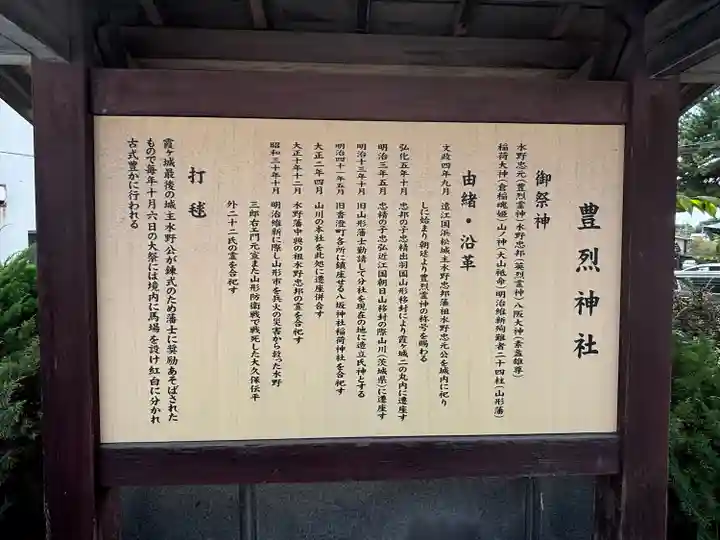 豊烈神社
御祭神
水野忠元(豊烈霊神)水野忠邦(英烈霊神)八阪大神(素盞雄尊)
稲荷大神(倉稲魂姫)山ノ神(大山祇命)明治維新殉難者二十四柱(山形藩)
由緒・沿革
文政四年九月 遠江国浜松城主水野忠邦藩祖水野忠元公を城内に祀り
しに始まり朝廷より豊烈霊神の称号を賜わる
弘化五年十月 忠邦の子忠精出羽国山形移封により霞ヶ城二の丸内に遷座す
明治三年五月 忠精の子忠弘近江国朝日山移封の際山川(茨城県)に遷座す
明治十三年十月 旧山形藩士勤請して分社を現在の地に造立氏神とする
明治四十一年五月 旧香澄町各所に鎮座せる八坂神社稲荷神社を合祀す
大正二年四月 山川の本社を此処に遷座併合す
大正十年十二月 水野藩中興の祖水野忠邦の霊を合祀す
昭和三十年十月 明治維新に際し山形市を兵火の災害から救った水野
三郎右エ門元宣また山形防衛戦で戦死した大久保伝平
外二十二氏の霊を合祀す
打毬
霞ヶ城最後の城主水野公が錬武のため藩士に奨励あそばされた
もので毎年十月六日の大祭には境内に馬場を設け紅白に分かれ
古式豊かに行われる